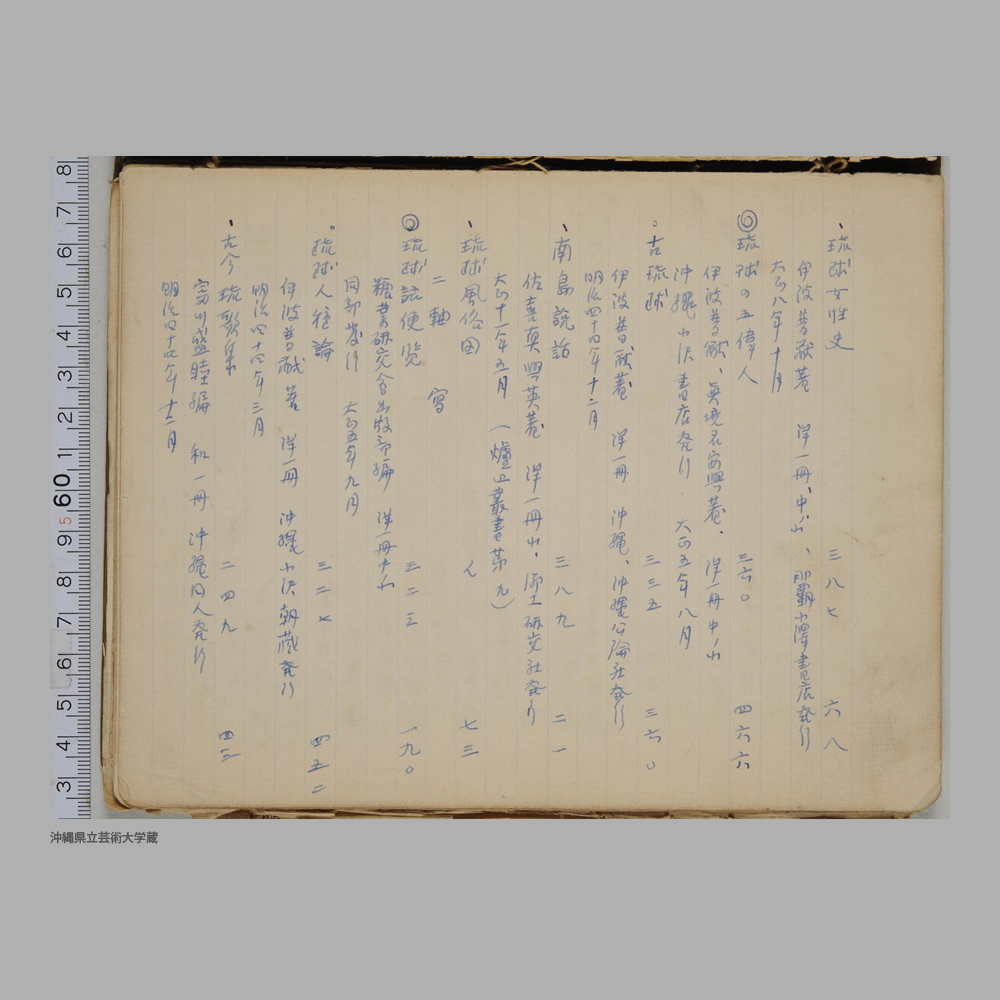 、琉球女性史　三八七　六八
伊波普猷著　洋一冊、中、小、那覇小澤書店発行
大正八年十月
◎琉球の五偉人　三六〇　四六六
伊波普猷、真境名安興著、洋一冊中小
沖縄小沢書店発行．大正五年八月
。古琉球　三三五　三六〇
伊波普猷著　洋一冊　沖縄、沖縄公論社発行
明治四十四年十二月
、南島説話　三八九　二一
佐喜真興英著　洋一冊小、郷土研究社発行
大正十一年五月　（爐辺叢書第九）
、琉球風俗図　七三
二軸　写
◎琉球語便覧　三二三　一九〇
糖業研究会出版部編　洋一冊中小
同部発行　大正五年九月
。琉球人種論　三二七　四五二
伊波普猷著　洋一冊　沖縄小沢朝蔵発行
明治四十四年三月
、古今琉歌集　二四九　四三
富川盛睦編　和一冊　沖縄同人発行
明治四十四年十二月
8 7 6 5 4 3 2 1 60 9 8 7 6 5 4 3
5
沖縄県立芸術大学蔵